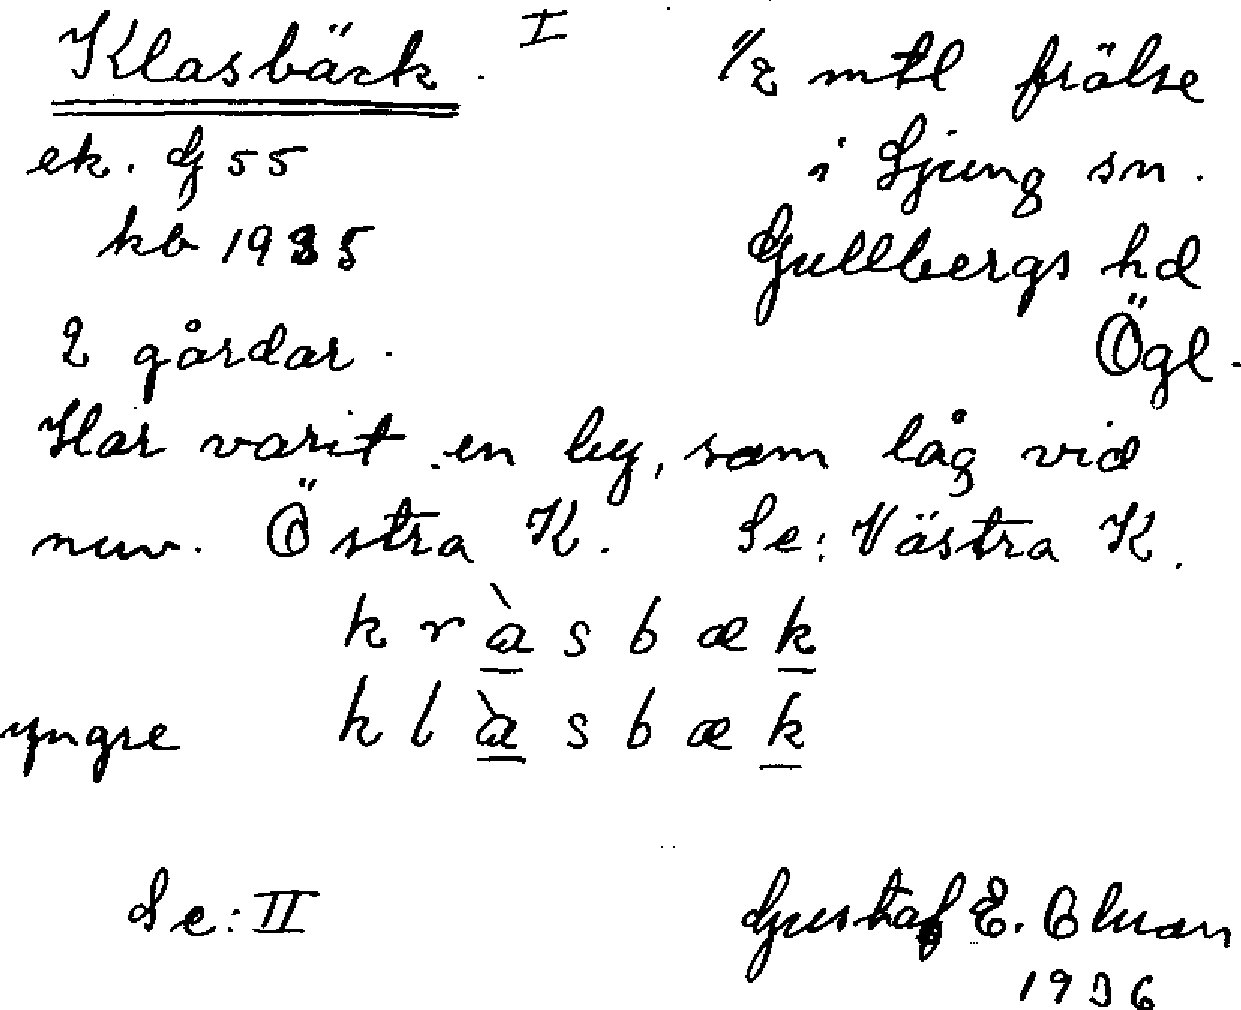 Klasbäck. I 1/2 mtl frälse
ek. G 55 i Ljung sn.
kb 1935 Gullbergs hd
2 gårdar. Ögl.
Har varit en by, som låg vid
nuv. Östra K. Se: Västra K.
kràsbæk
yngre klàsbæk
Se: II Gustaf E.
1936